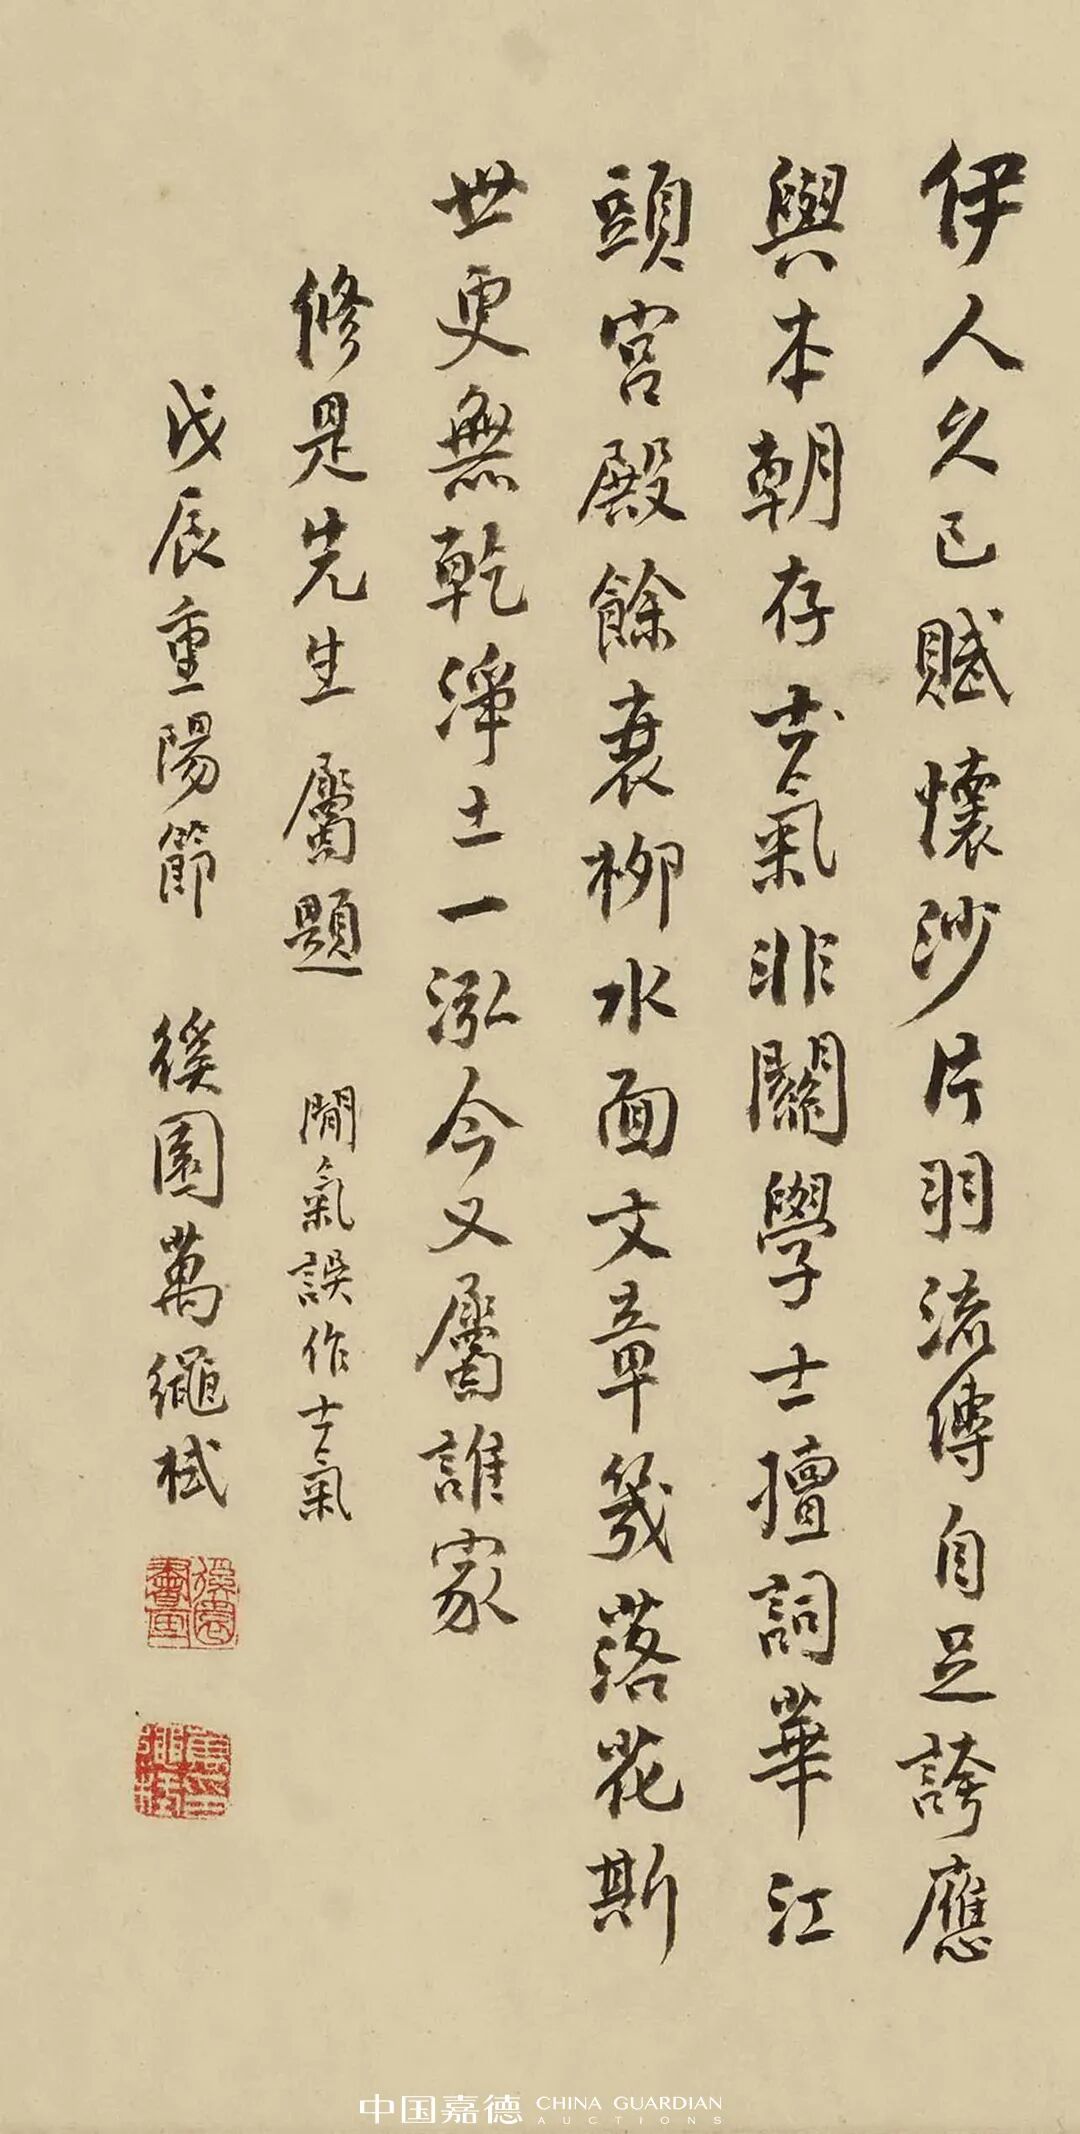 伊人久已賦懷沙片羽流傳自足誇應
與本朝存士氣非關學士擅詞華江
頭宮殿餘衰柳水面文章幾落花斯
世更無乾淨土一泓今又屬誰家
修是先生屬題 閒氣誤作士氣
戊辰重陽節 徯園萬繩栻
中国嘉德 CHINA GUARDIAN
AUCTIONS